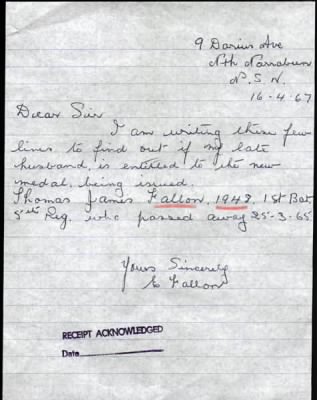 9 Darius Ave
Nth Narrabeen
N.S.W.
16-4-67
Dear Sir
I am writing these few
lines to find out if my late
husband, is entitled to the new
medal, being issued.
Thomas James Fallon, 1948, 1st Bat.
5th Reg. who passed away 25-3-65
Yours Sincerely
E Fallon
RECEIPT ACKNOWLEDGED
Date